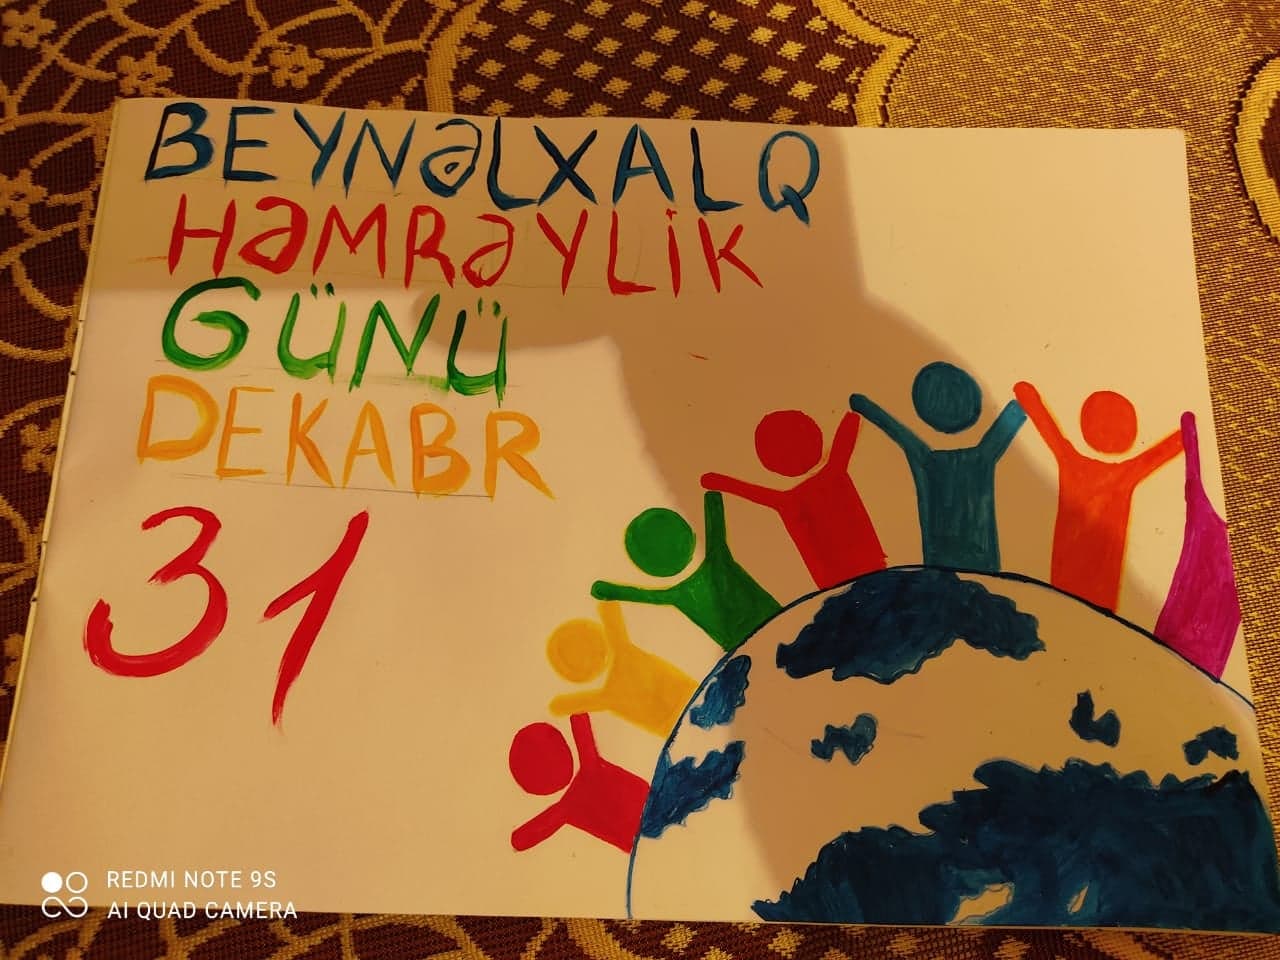 BEYNƏLXALQ
HƏMRƏYLİK
GÜNÜ
DEKABR
31
REDMI NOTE 9S
AI QUAD CAMERA